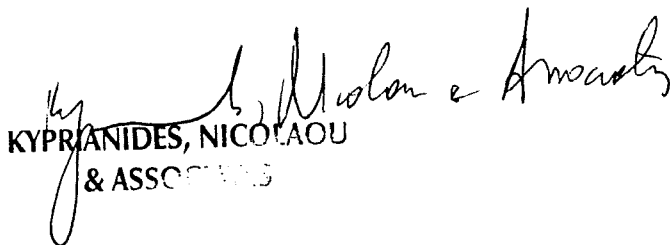 Kyprianides, Nicolaou & Associates
KYPRIANIDES, NICOLAOU
& ASSOCIATES